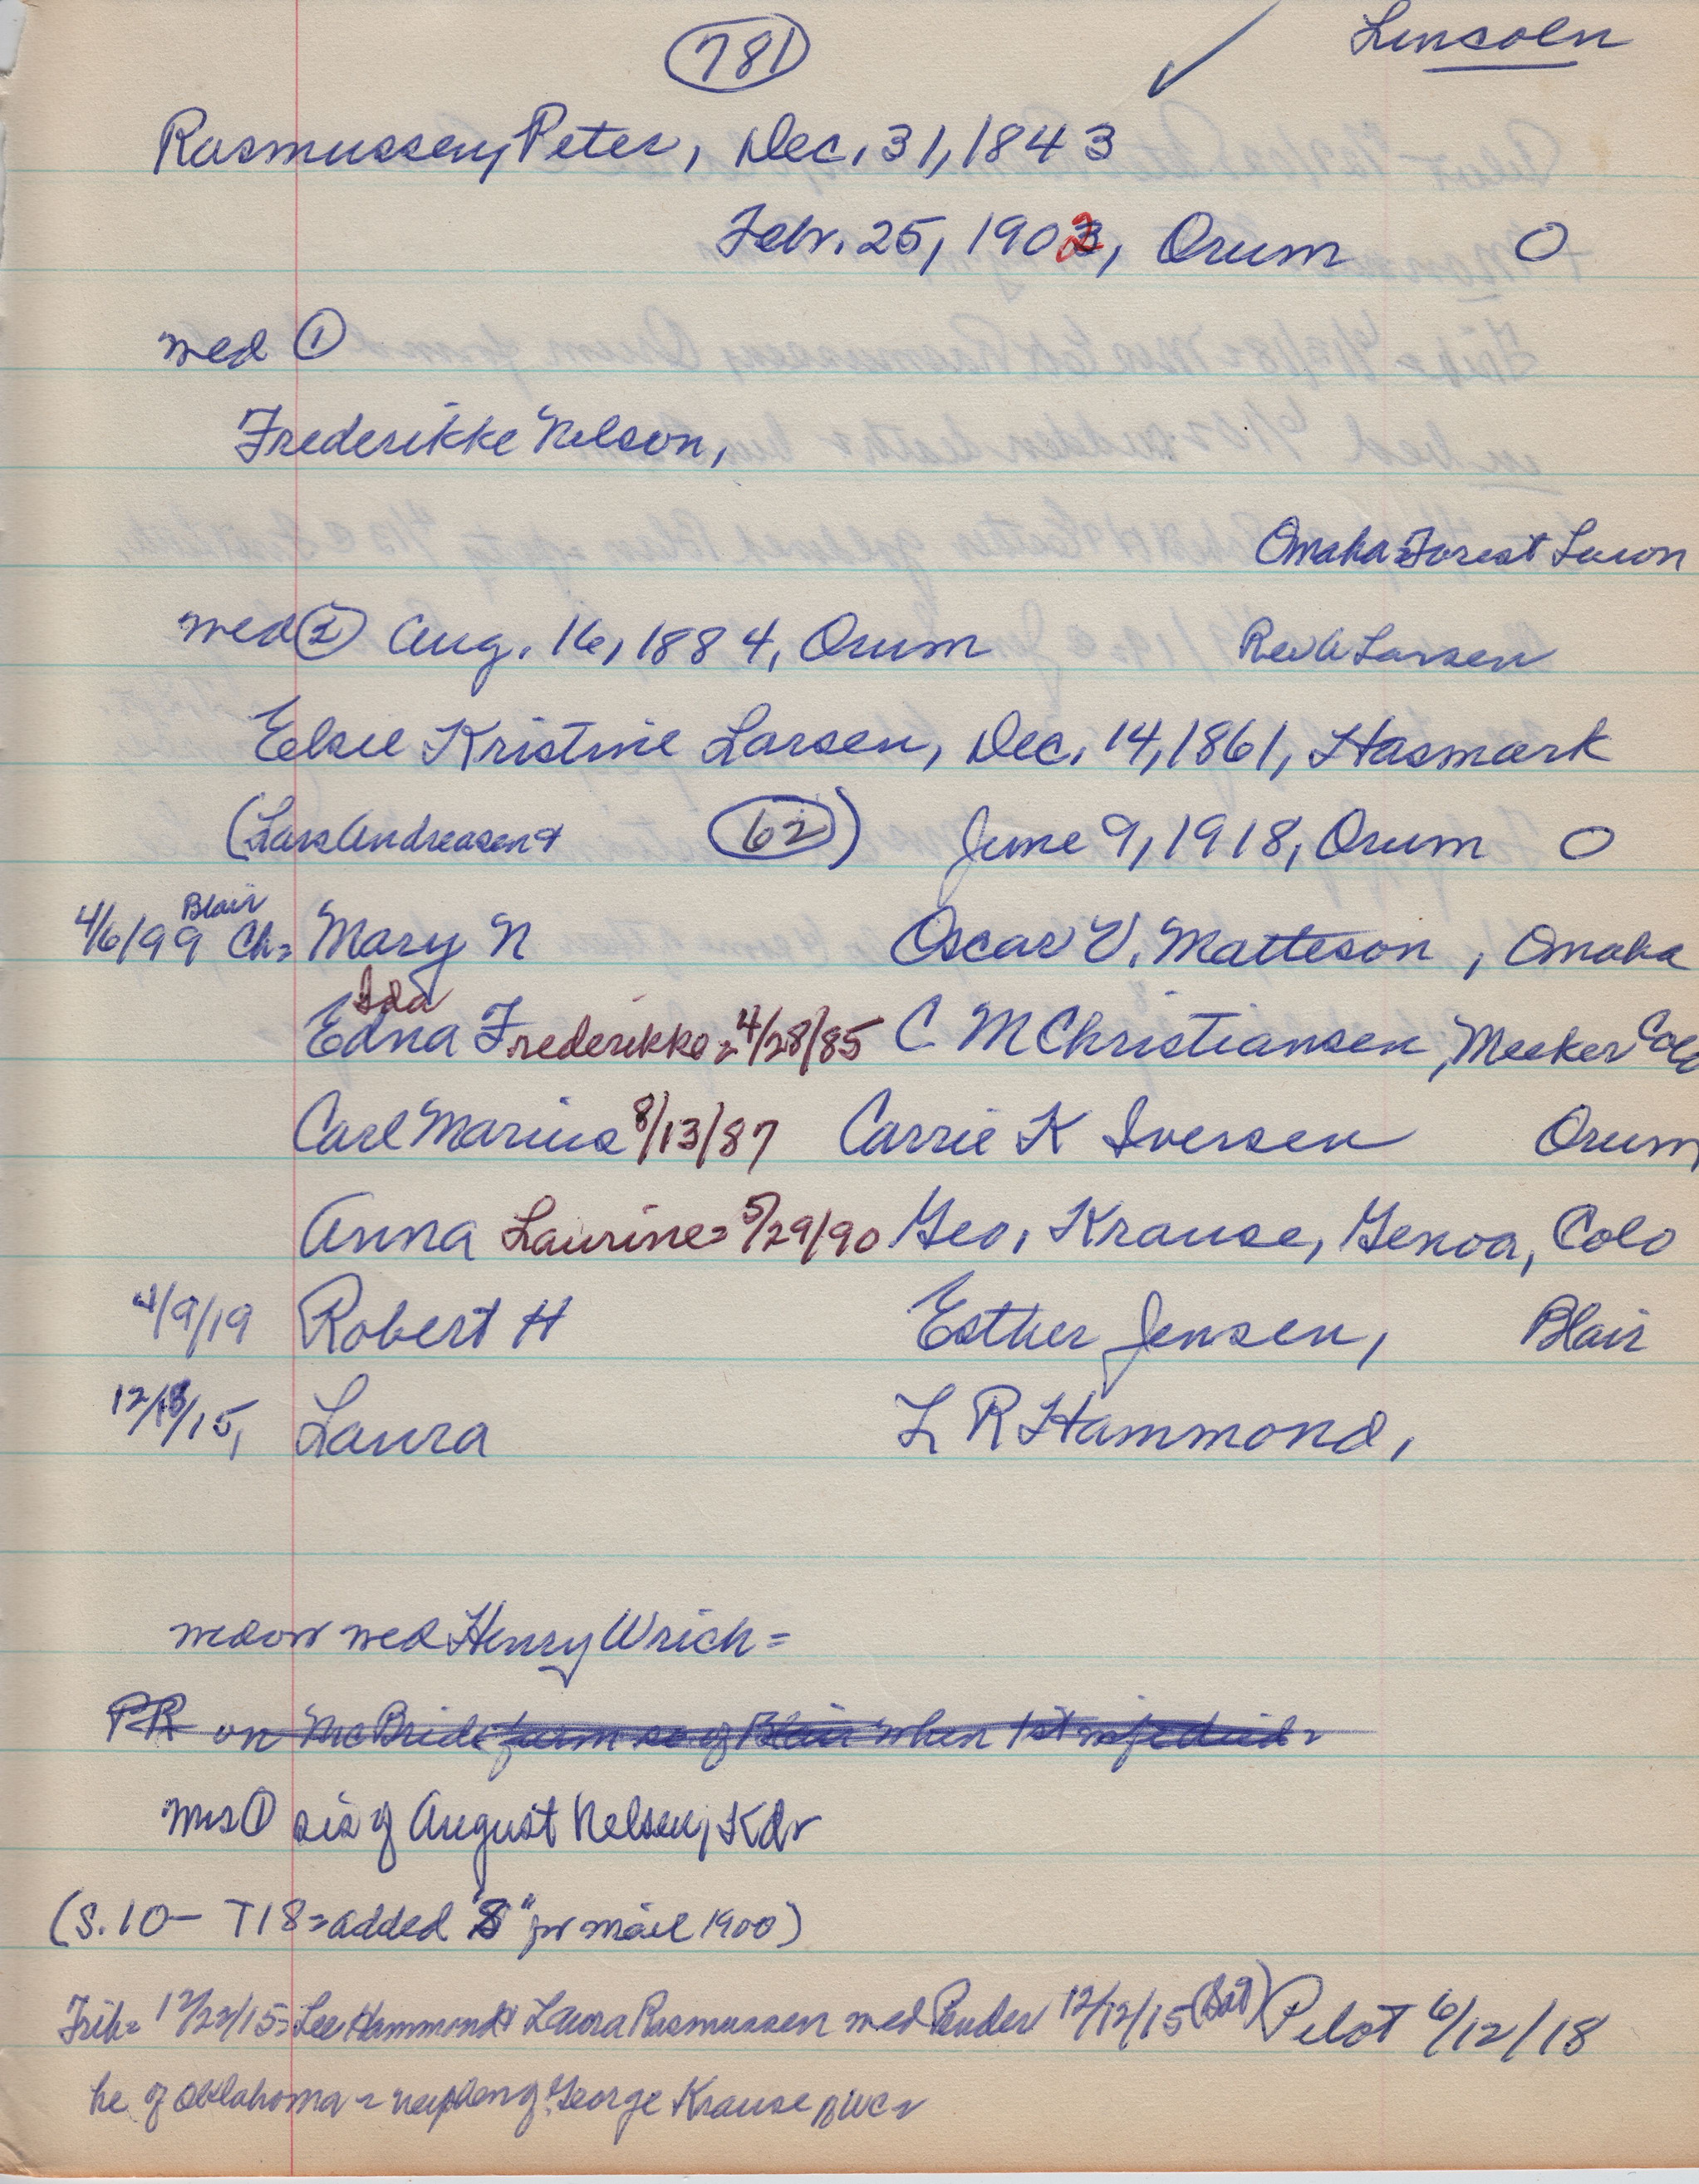 781
Lincoln
Rasmussen, Peter, Dec. 31, 1843
Febr. 25, 1902, Orum O
wed ①
Frederikke Nelson,
Omaha = Forest Lawn
wed ② Aug. 16, 1884, Orum Rev A Larsen
Elsie Kristine Larsen, Dec. 14, 1861, Hasmark
(Lars Andreasen + 62) June 9, 1918, Orum O
Blair
4/6/99 Ch= Mary N Oscar V. Matteson, Omaha
Ida
Edna Frederikke = 4/28/85 C M Christiansen, Meeker Colo
Carl Marius 8/13/87 Carrie K Iversen Orum
Anna Laurine = 5/29/90 Geo. Krause, Genoa, Colo
4/9/19 Robert H Esther Jensen, Blair
12/ /15, Laura L R Hammond,
wed Henry Wrich =
PR on McBride farm se of Blair when 1st wife died =
Mrs ① sis of August Nelsen, Kdr
(S. 10 - T18 = added "S" for mail 1900)
Trib = 12/22/15 = Lee Hammond + Laura Rasmussen wed Pender 12/12/15 (Sat) Pilot 6/12/18
he of Oklahoma = nephew of George Krause